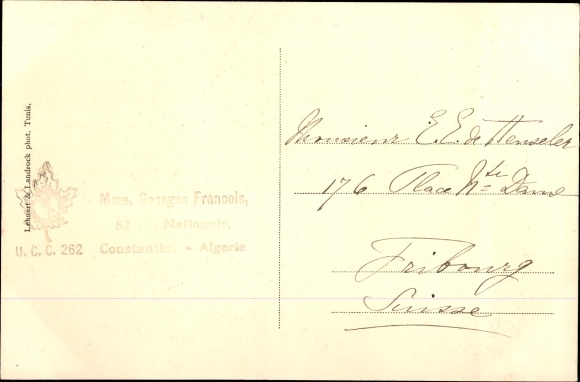 Lehnert & Landrock phot, Tunis.
Mme. Georges Francois,
52 Nationale,
U. C. C. 262 Constantine - Algerie
Monsieur E. E. de Henseler
176 Place Nte Dame
Fribourg
Suisse